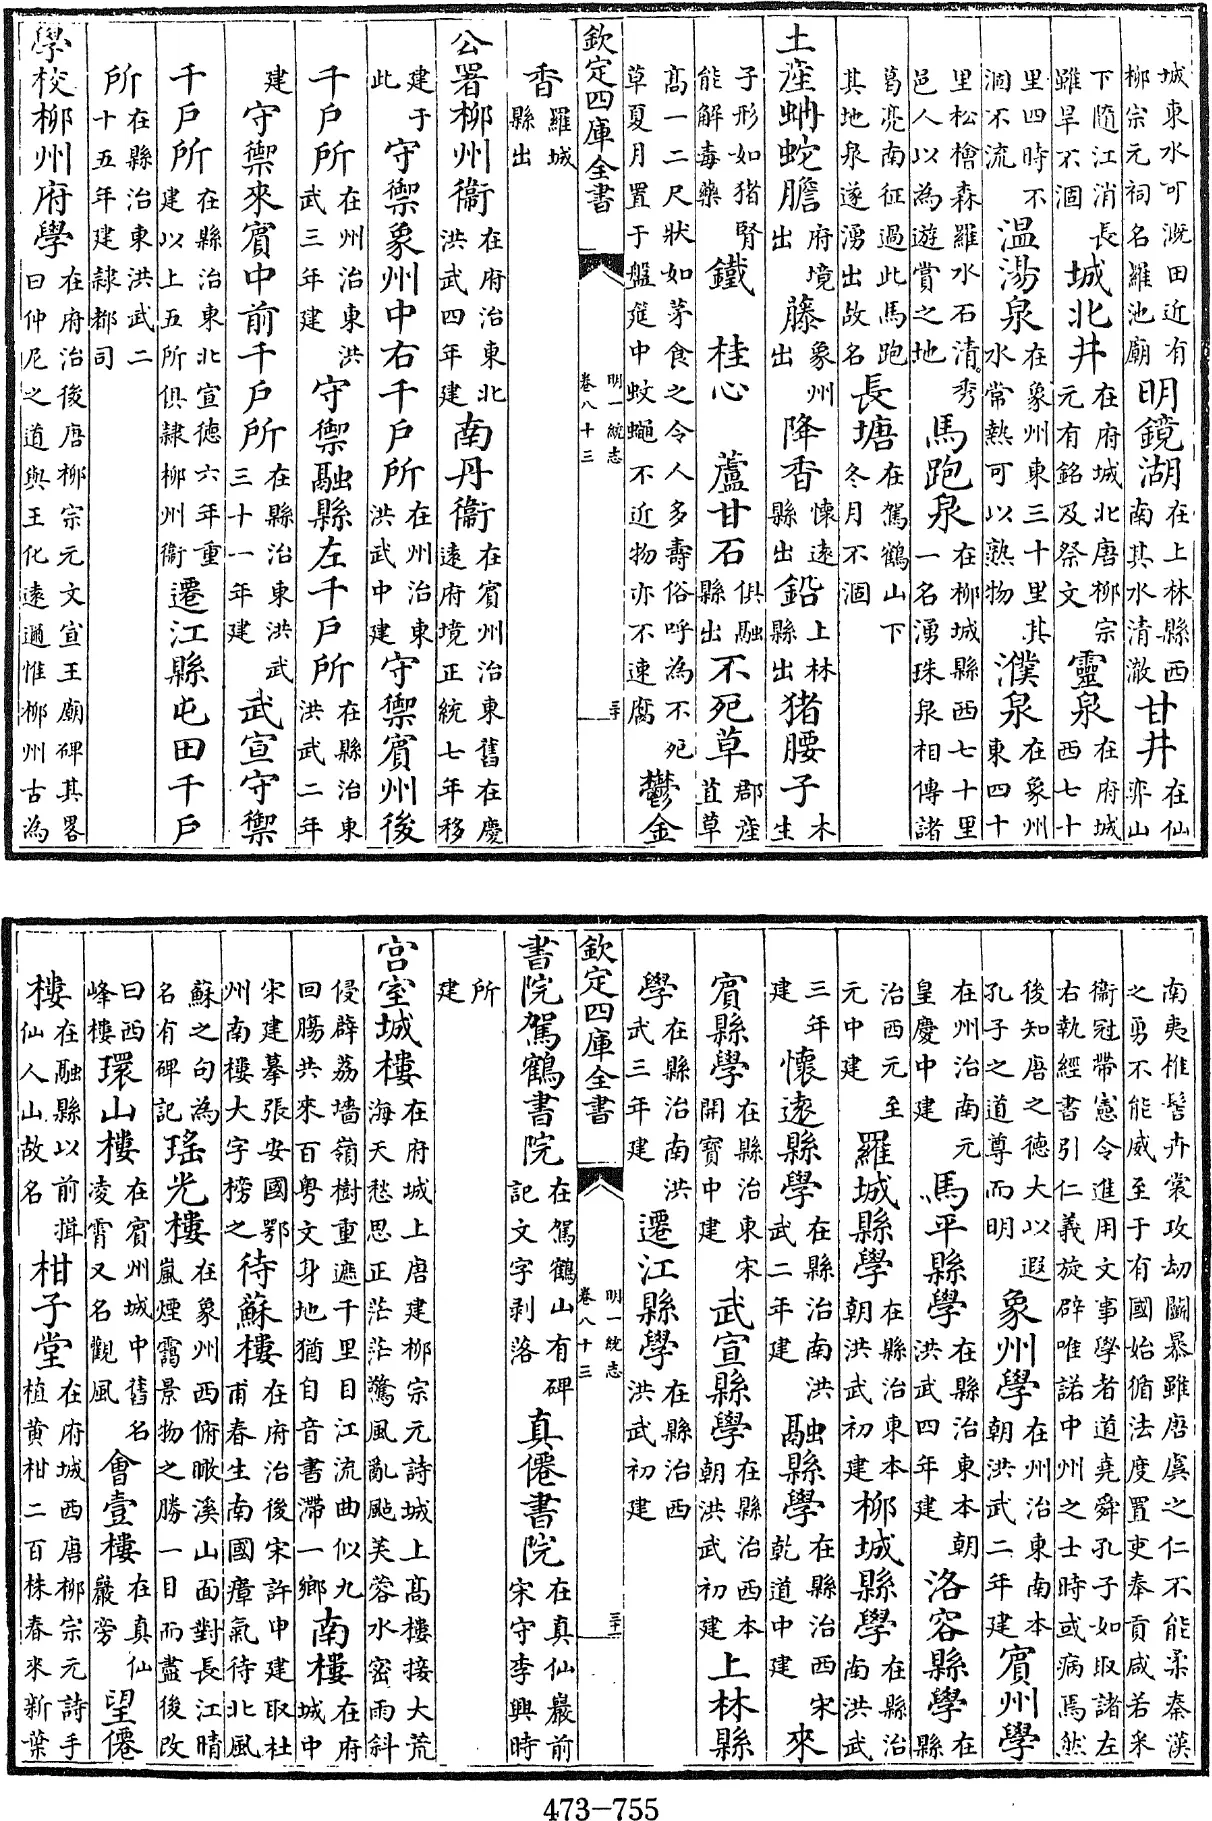 城東水可溉田近有柳宗元祠名羅池廟明鏡湖在上林縣西南其水清澈甘井在仙弈山
下隨江消長雖旱不涸城北井在府城北唐柳宗元有銘及祭文靈泉在府城西七十
里四時不涸不流温湯泉在象州東三十里其水常熱可以熟物濮泉在象州東四十
里松檜森羅水石清秀邑人以為遊賞之地馬跑泉在柳城縣西七十里一名湧珠泉相傳諸
葛亮南征過此馬跑其地泉遂湧出故名長塘在駕鶴山下冬月不涸
土産蚺蛇膽府境出藤象州出降香懐遠縣出鉛上林縣出猪腰子木生
子形如猪腎能解毒藥鐵 桂心 蘆甘石俱融縣出不死草郡産苴草
高一二尺狀如茅食之令人多壽俗呼為不死草夏月置于盤筵中蚊蠅不近物亦不速腐鬱金
欽定四庫全書 明一統志 卷八十三 三十
香羅城縣出
公署柳州衞在府治東北洪武四年建南丹衞在賓州治東舊在慶遠府境正統七年移
建于此守禦象州中右千户所在州治東洪武中建守禦賓州後
千户所在州治東洪武三年建守禦融縣左千户所在縣治東洪武二年
建守禦來賓中前千户所在縣治東洪武三十一年建武宣守禦
千户所在縣治東北宣德六年重建以上五所俱隷柳州衞遷江縣屯田千户
所在縣治東洪武二十五年建隷都司
學校柳州府學在府治後唐柳宗元文宣王廟碑其畧曰仲尼之道與王化遠邇惟柳州古為
南夷椎髻卉裳攻劫鬭暴雖唐虞之仁不能柔秦漢之勇不能威至于有國始循法度置吏奉貢咸若采
衞冠帶憲令進用文事學者道堯舜孔子如取諸左右執經書引仁義旋辟唯諾中州之士時或病焉然
後知唐之德大以遐孔子之道尊而明象州學在州治東南本朝洪武二年建賓州學
在州治南元皇慶中建馬平縣學在縣治東本朝洪武四年建洛容縣學在縣
治西元至元中建羅城縣學在縣治東本朝洪武初建柳城縣學在縣治南洪武
三年建懐遠縣學在縣治南洪武二年建融縣學在縣治西宋乾道中建來
賓縣學在縣治東宋開寶中建武宣縣學在縣治西本朝洪武初建上林縣
學在縣治南洪武三年建遷江縣學在縣治西洪武初建
欽定四庫全書 明一統志 卷八十三 三十一
書院駕鶴書院在駕鶴山有碑記文字剥落真僊書院在真仙巖前宋守李興時
所建
宫室城樓在府城上唐建柳宗元詩城上高樓接大荒海天愁思正茫茫驚風亂颭芙蓉水密雨斜
侵薜荔墻嶺樹重遮千里目江流曲似九回膓共來百粤文身地猶自音書滯一鄉南樓在府城中
宋建摹張安國鄂州南樓大字榜之待蘇樓在府治後宋許申建取杜甫春生南國瘴氣待北風
蘇之句為名有碑記瑤光樓在象州西俯瞰溪山面對長江晴嵐煙靄景物之勝一目而盡後改
曰西峰樓環山樓在賓州城中舊名凌霄又名觀風會壹樓在真仙巖旁望僊
樓在融縣以前揖仙人山故名柑子堂在府城西唐柳宗元詩手植黄柑二百株春來新葉
473-755